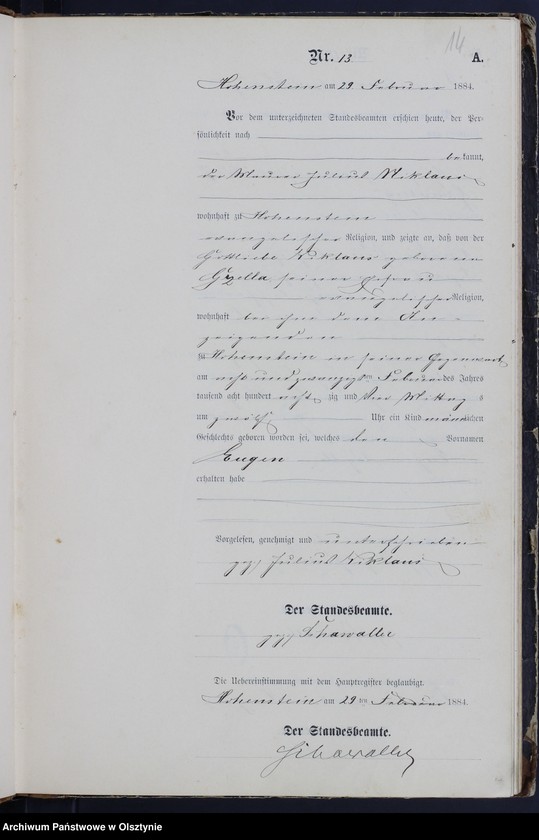 14
Nr. 13
A.
Hohenstein am 29. Februar 1884.
Vor dem unterzeichneten Standesbeamten erschien heute, der Per-
sönlichkeit nach
bekannt,
der Maurer Julius Niklaus
wohnhaft zu Hohenstein
evangelischer Religion, und zeigte an, daß von der
Gottliebe Niklaus geborenen
seiner Ehefrau
evangelischer Religion,
wohnhaft bei ihm dem An-
zeigenden
zu Hohenstein in seiner Gegenwart
am acht und zwanzigsten Februar des Jahrs
tausend acht hundert achtzig und vier Mittags
um zwölf Uhr ein Kind männlichen
Geschlechts geboren worden sei, welches den Vornamen
Eugen
erhalten habe
Vorgelesen, genehmigt und unterschrieben
gez. Julius Niklaus
Der Standesbeamte.
gez. Schawaller
Die Uebereinstimmung mit dem Hauptregister beglaubigt.
Hohenstein am 29ten Februar 1884.
Der Standesbeamte.
Schawaller
Archiwum Państwowe w Olsztynie